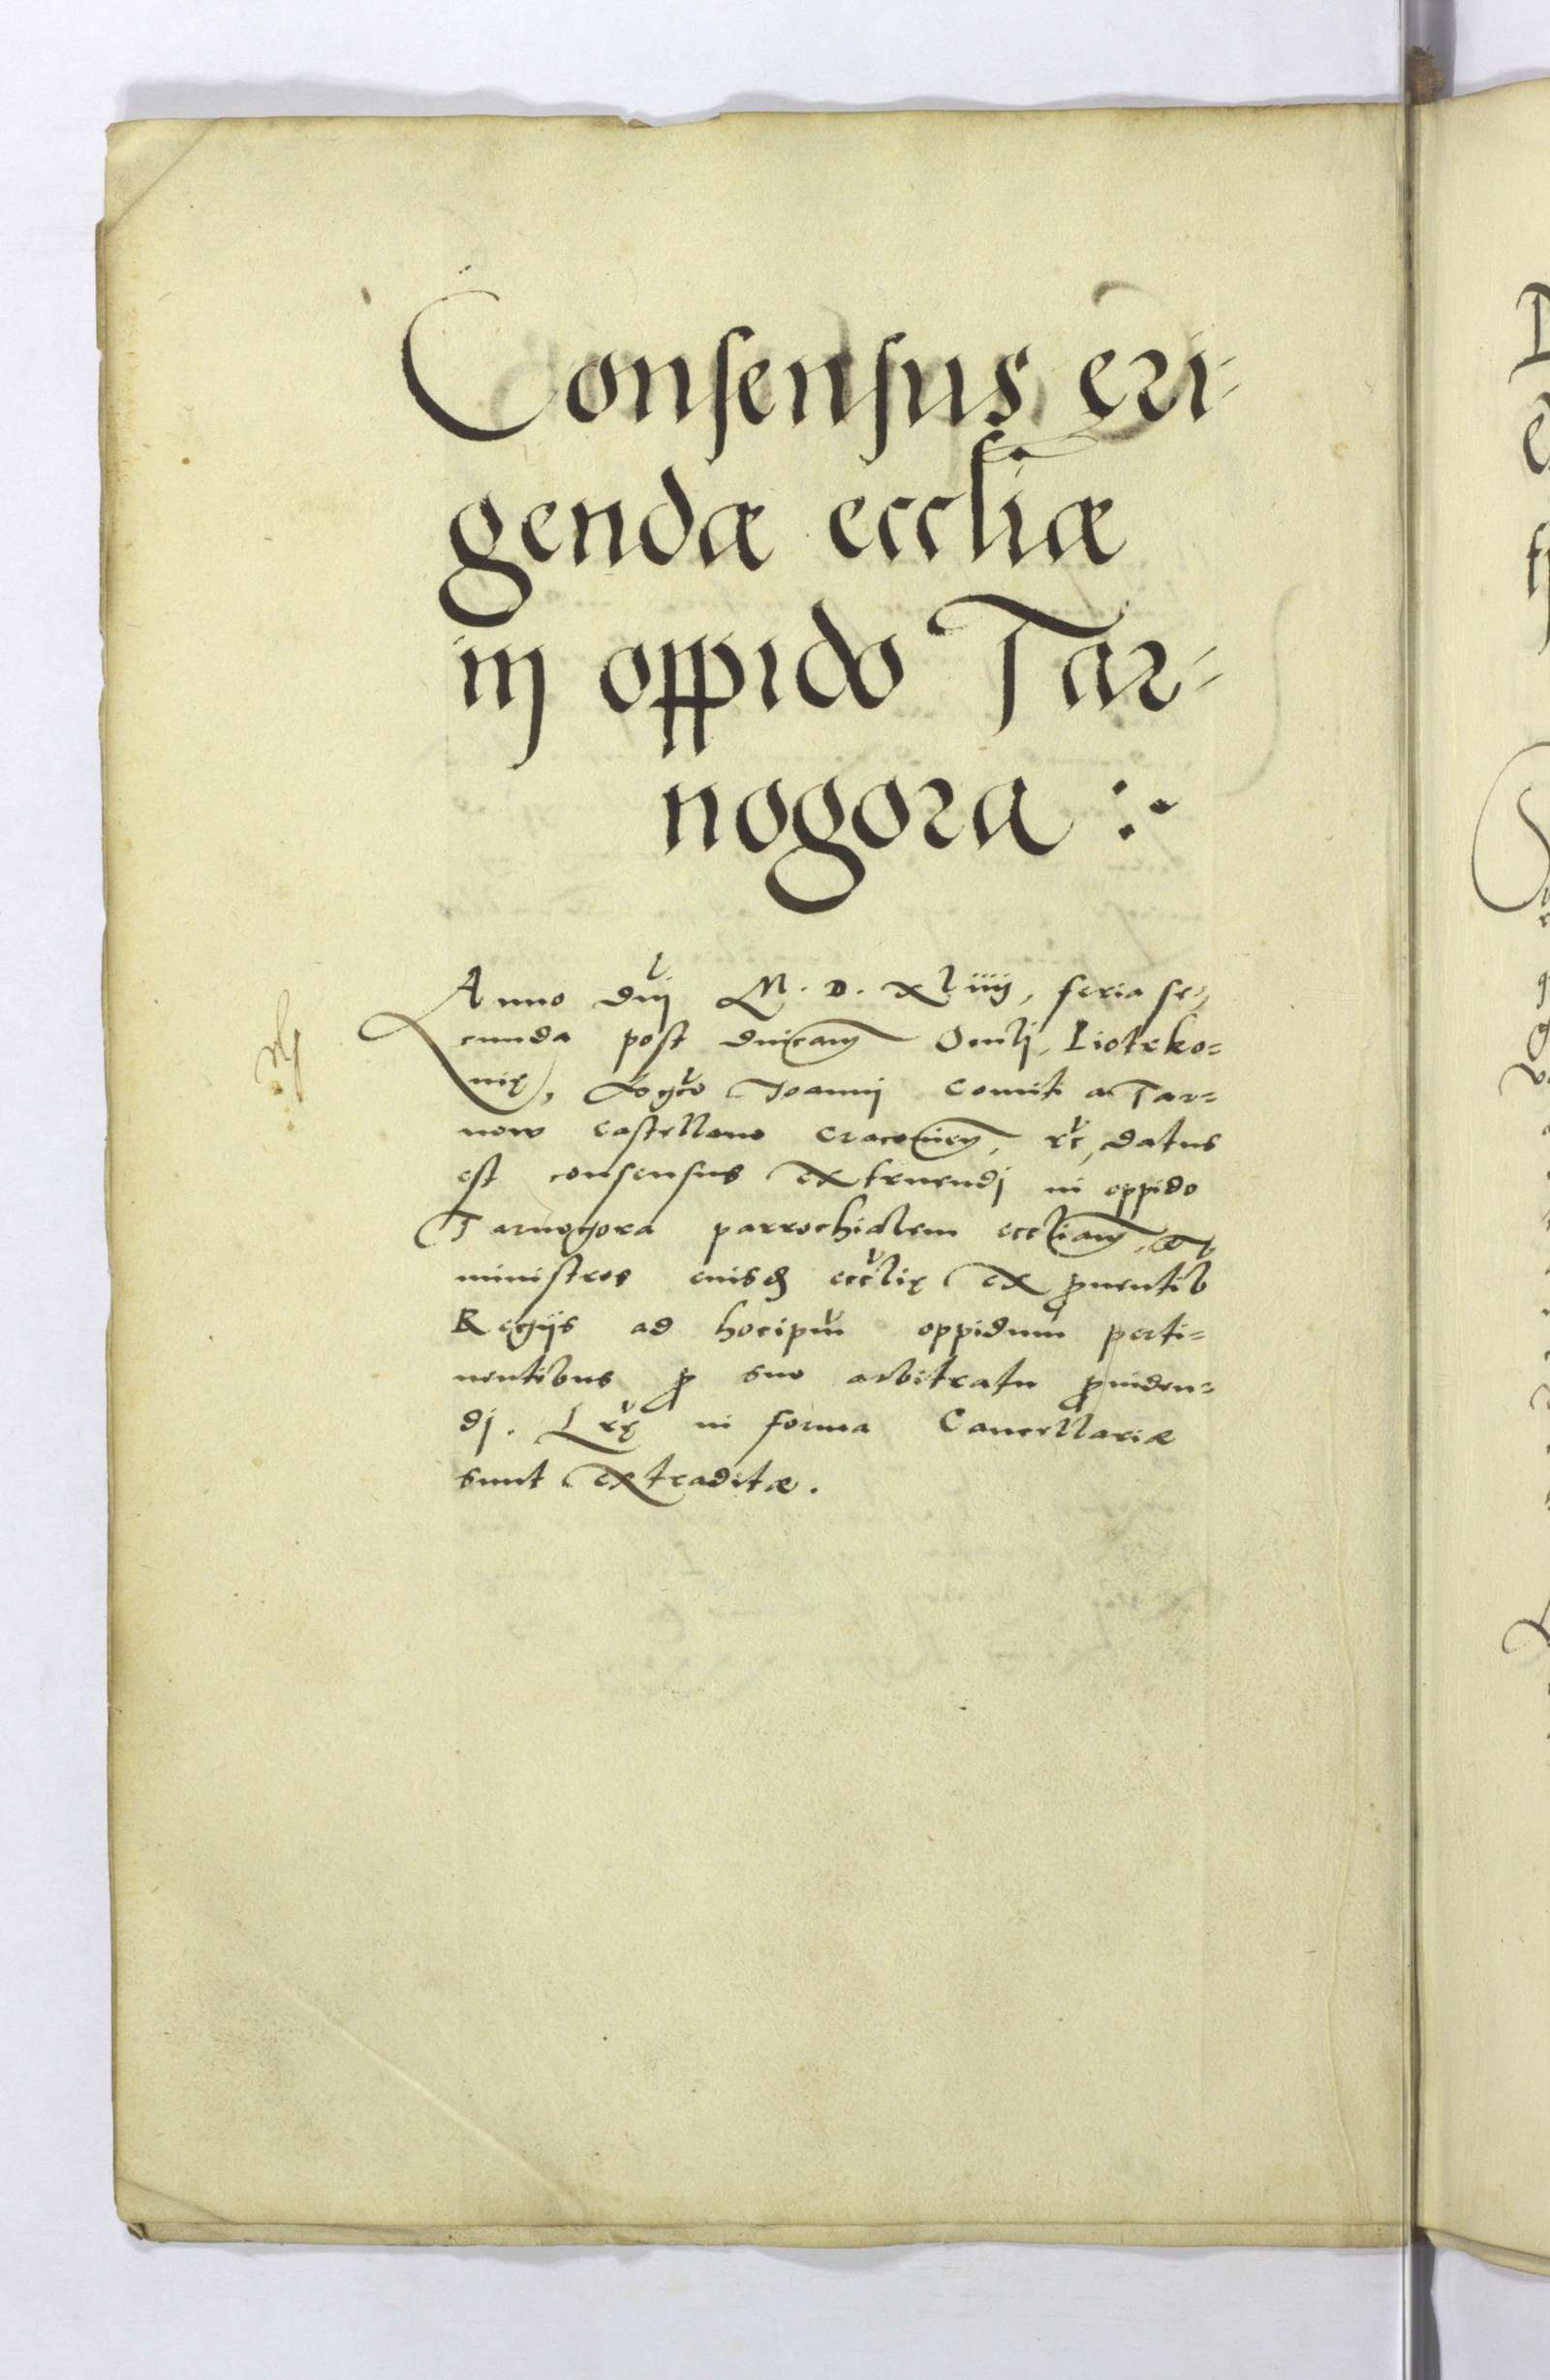 Consensus eri-
gendæ eccliæ
in oppido Tar-
nogora :-
Anno dni M. D. xliiii, feria se-
cunda post dnicam Oculi, Piotrko-
nię, Joanni comiti a Tar=
now castellano cracovien, etc, datus
est consensus extruendi in oppido
Tarnogora parrochialem eccliam, et
ministros eiusd eccłię ex pventib
Regijs ad hocipm oppidum perti=
nentibus p suo arbitratu pviden=
di. Lrę in forma Cancellariæ
sunt extraditæ.